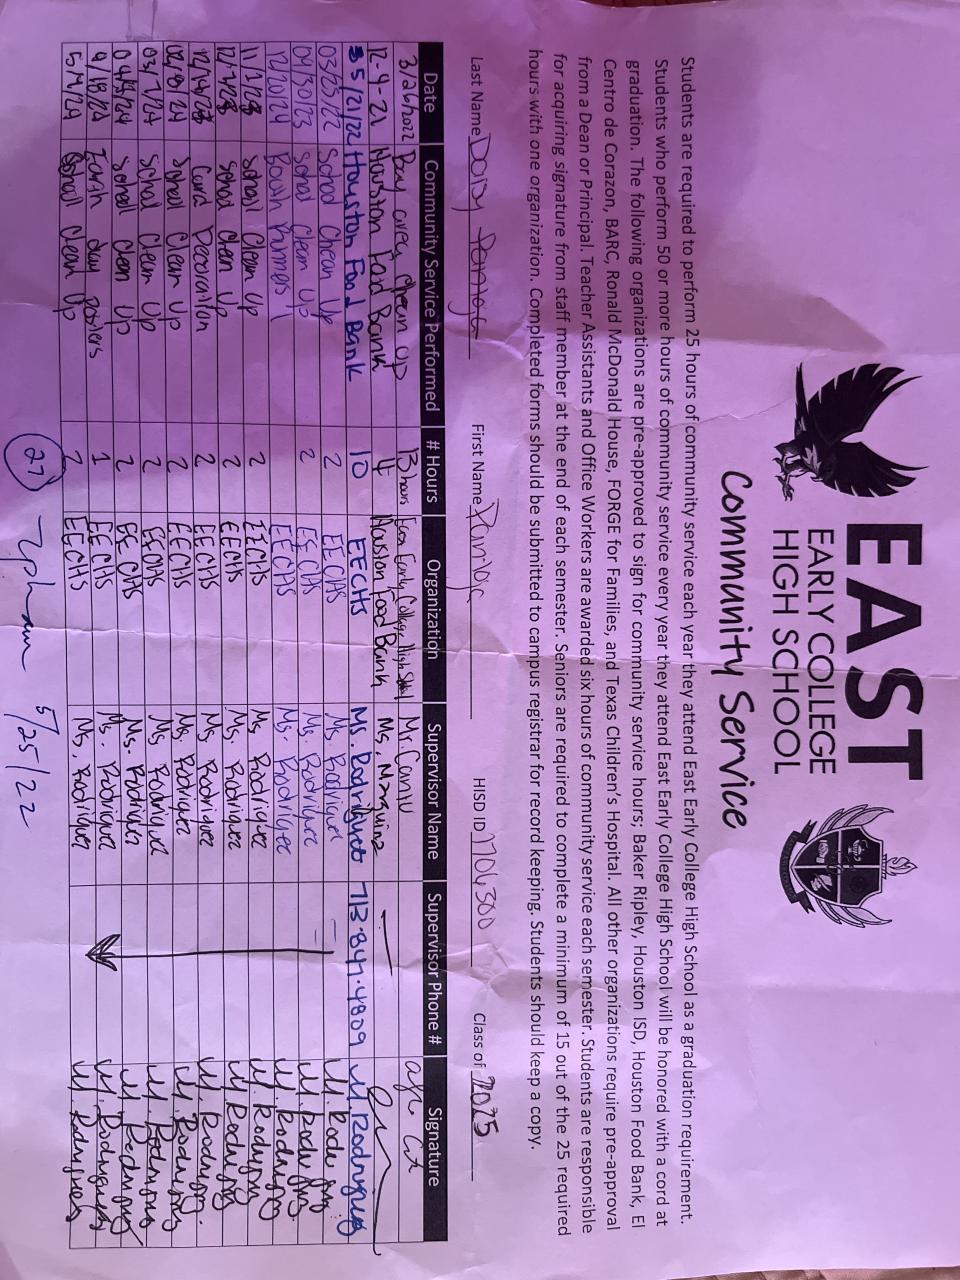 EAST
EARLY COLLEGE
HIGH SCHOOL
Community Service
Students are required to perform 25 hours of community service each year they attend East Early College High School as a graduation requirement.
Students who perform 50 or more hours of community service every year they attend East Early College High School will be honored with a cord at
graduation. The following organizations are pre-approved to sign for community service hours; Baker Ripley, Houston ISD, Houston Food Bank, El
Centro de Corazon, BARC, Ronald McDonald House, FORGE for Families, and Texas Children's Hospital. All other organizations require pre-approval
from a Dean or Principal. Teacher Assistants and Office Workers are awarded six hours of community service each semester. Students are responsible
for acquiring signature from staff member at the end of each semester. Seniors are required to complete a minimum of 15 out of the 25 required
hours with one organization. Completed forms should be submitted to campus registrar for record keeping. Students should keep a copy.
Last Name First Name HISD ID 1706300 Class of 2025
Date Community Service Performed # Hours Organization Supervisor Name Supervisor Phone # Signature
3/26/2022 Bay area Clean Up 13 hours East Early College High School M. Cantu
12-9-21 Houston Food Bank 4 Houston Food Bank Ms.
5/21/22 Houston Food Bank 10 EECHS Ms. Rodriguez 713.847.4809 M. Rodriguez
03/23/22 School Clean Up 2 EECHS Ms. Rodriguez M. Rodriguez
09/30/23 School Clean Up 2 EECHS Ms. Rodriguez M. Rodriguez
12/2024 Book EECHS Ms. Rodriguez M. Rodriguez
11/1/23 School Clean Up 2 EECHS Ms. Rodriguez M. Rodriguez
12/7/23 School Clean Up 2 EECHS Ms. Rodriguez M. Rodriguez
12/14/23 Card Decoration 2 EECHS Ms. Rodriguez M. Rodriguez
02/01/24 School Clean Up 2 EECHS Ms. Rodriguez M. Rodriguez
03/7/24 School Clean Up 2 EECHS Ms. Rodriguez M. Rodriguez
04/4/24 School Clean Up 2 EECHS Ms. Rodriguez M. Rodriguez
4/18/24 Earth day posters 1 EECHS Ms. Rodriguez M. Rodriguez
5/14/24 School Clean Up 2 EECHS Ms. Rodriguez M. Rodriguez
27 5/25/22